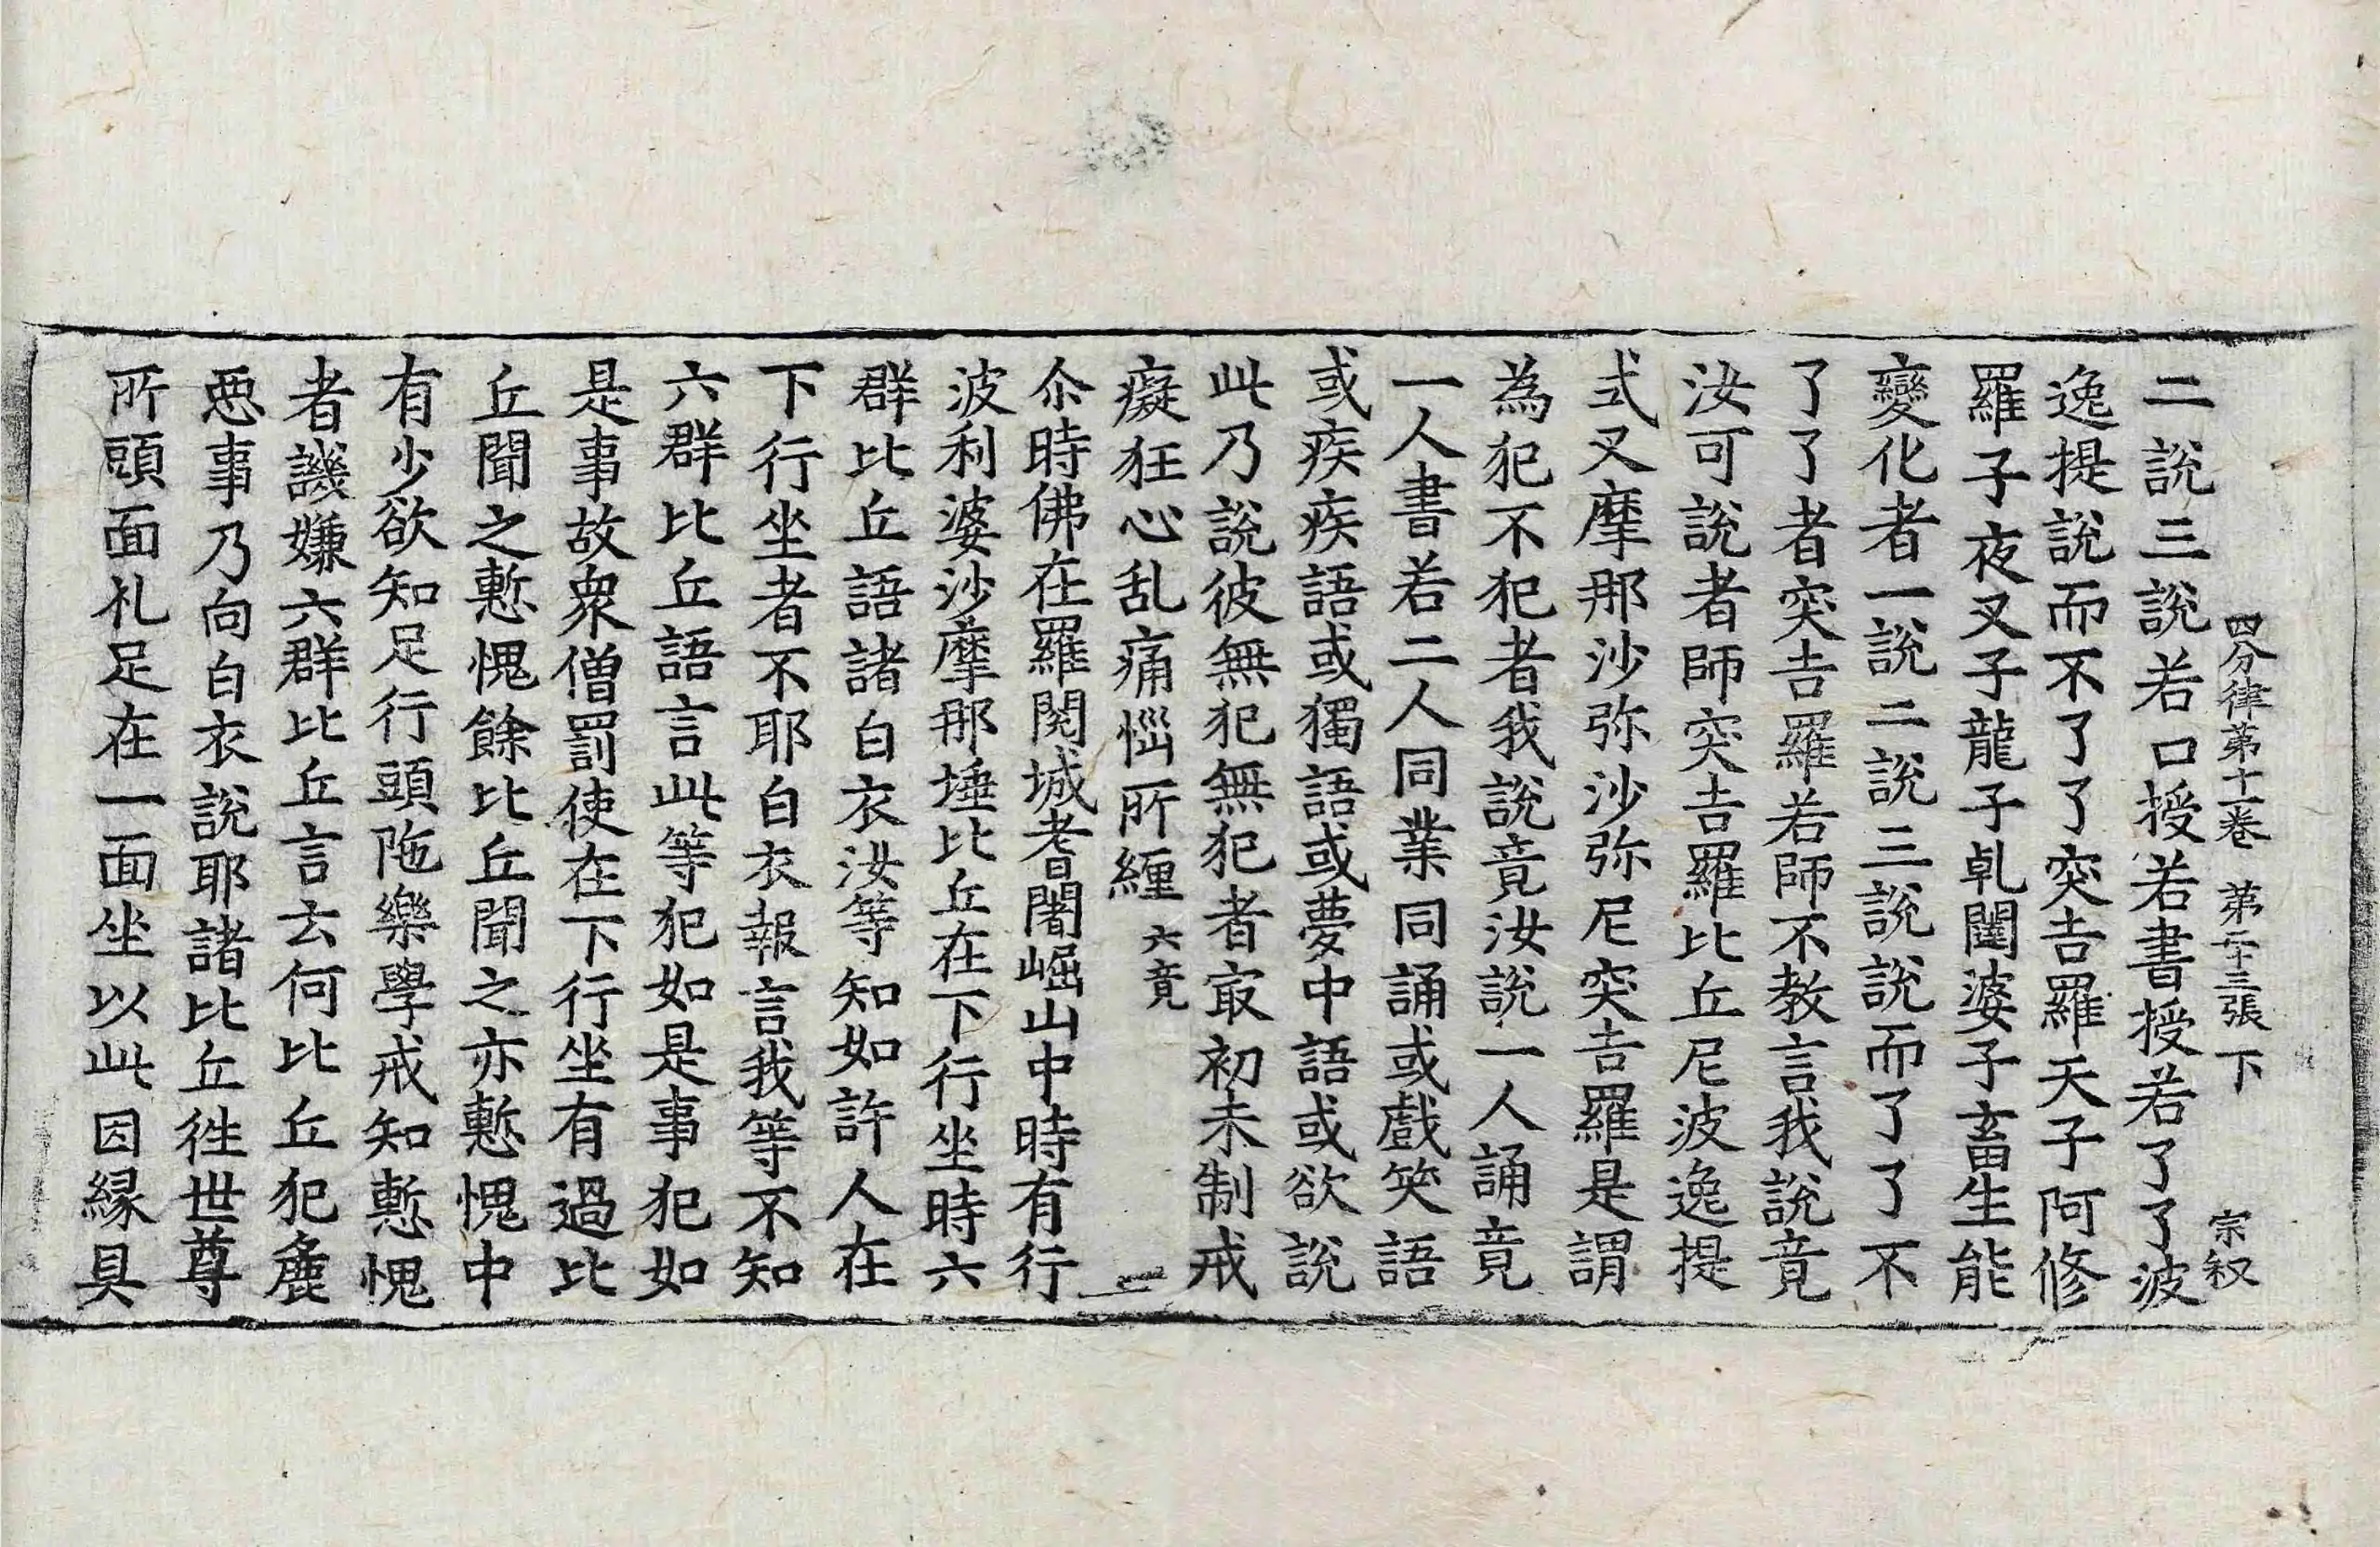 四分律第十一卷 第二十三張 下 宗叙
二說三說若口授若書授若了了波
逸提說而不了了突吉羅天子阿修
羅子夜叉子龍子乹闥婆子畜生能
變化者一說二說三說說而了了不
了了者突吉羅若師不教言我說竟
汝可說者師突吉羅比丘尼波逸提
式叉摩那沙弥沙弥尼突吉羅是謂
為犯不犯者我說竟汝說一人誦竟
一人書若二人同業同誦或戲笑語
或疾疾語或獨語或夢中語或欲說
此乃說彼無犯無犯者㝡初未制戒
癡狂心乱痛惱所纏 六竟
尒時佛在羅閱城耆闍崛山中時有行
波利婆沙摩那埵比丘在下行坐時六
群比丘語諸白衣汝等知如許人在
下行坐者不耶白衣報言我等不知
六群比丘語言此等犯如是事犯如
是事故衆僧罰使在下行坐有過比
丘聞之慙愧餘比丘聞之亦慙愧中
有少欲知足行頭陁樂學戒知慙愧
者譏嫌六群比丘言去何比丘犯麁
惡事乃向白衣說耶諸比丘徃世尊
所頭面礼足在一面坐以此因縁具